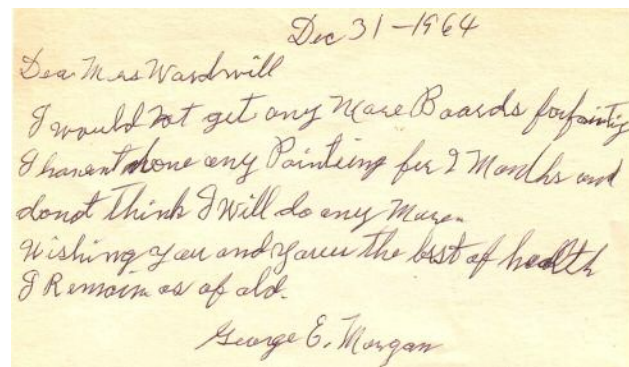 Dec 31-1964
Dear Mrs Wardwill
I would not get any more Boards for painting
I havent done any Painting for 2 Months and
donot think I Will do any More.
Wishing you and yours the best of health
I Remain as of old.
George E. Morgan